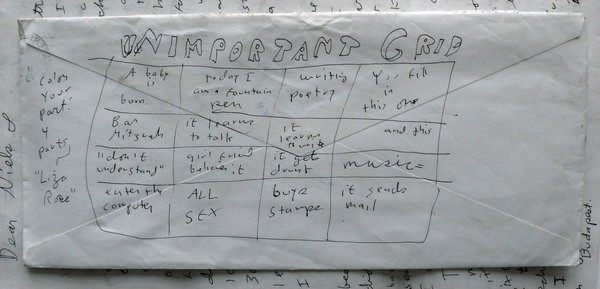 UNIMPORTANT GRID
A baby is born.
today I am a fountain pen
writing poetry
You fill in this one
Bar Mitzvah
it learns to talk
it learns to write
and this
"don't understand"
girl friend
it gets drunk
music =
enter the computer
ALL SEX
buys stamps
it sends mail
Color your part!
4 parts
"Liza Rose"
Dear Niels
Budapest.